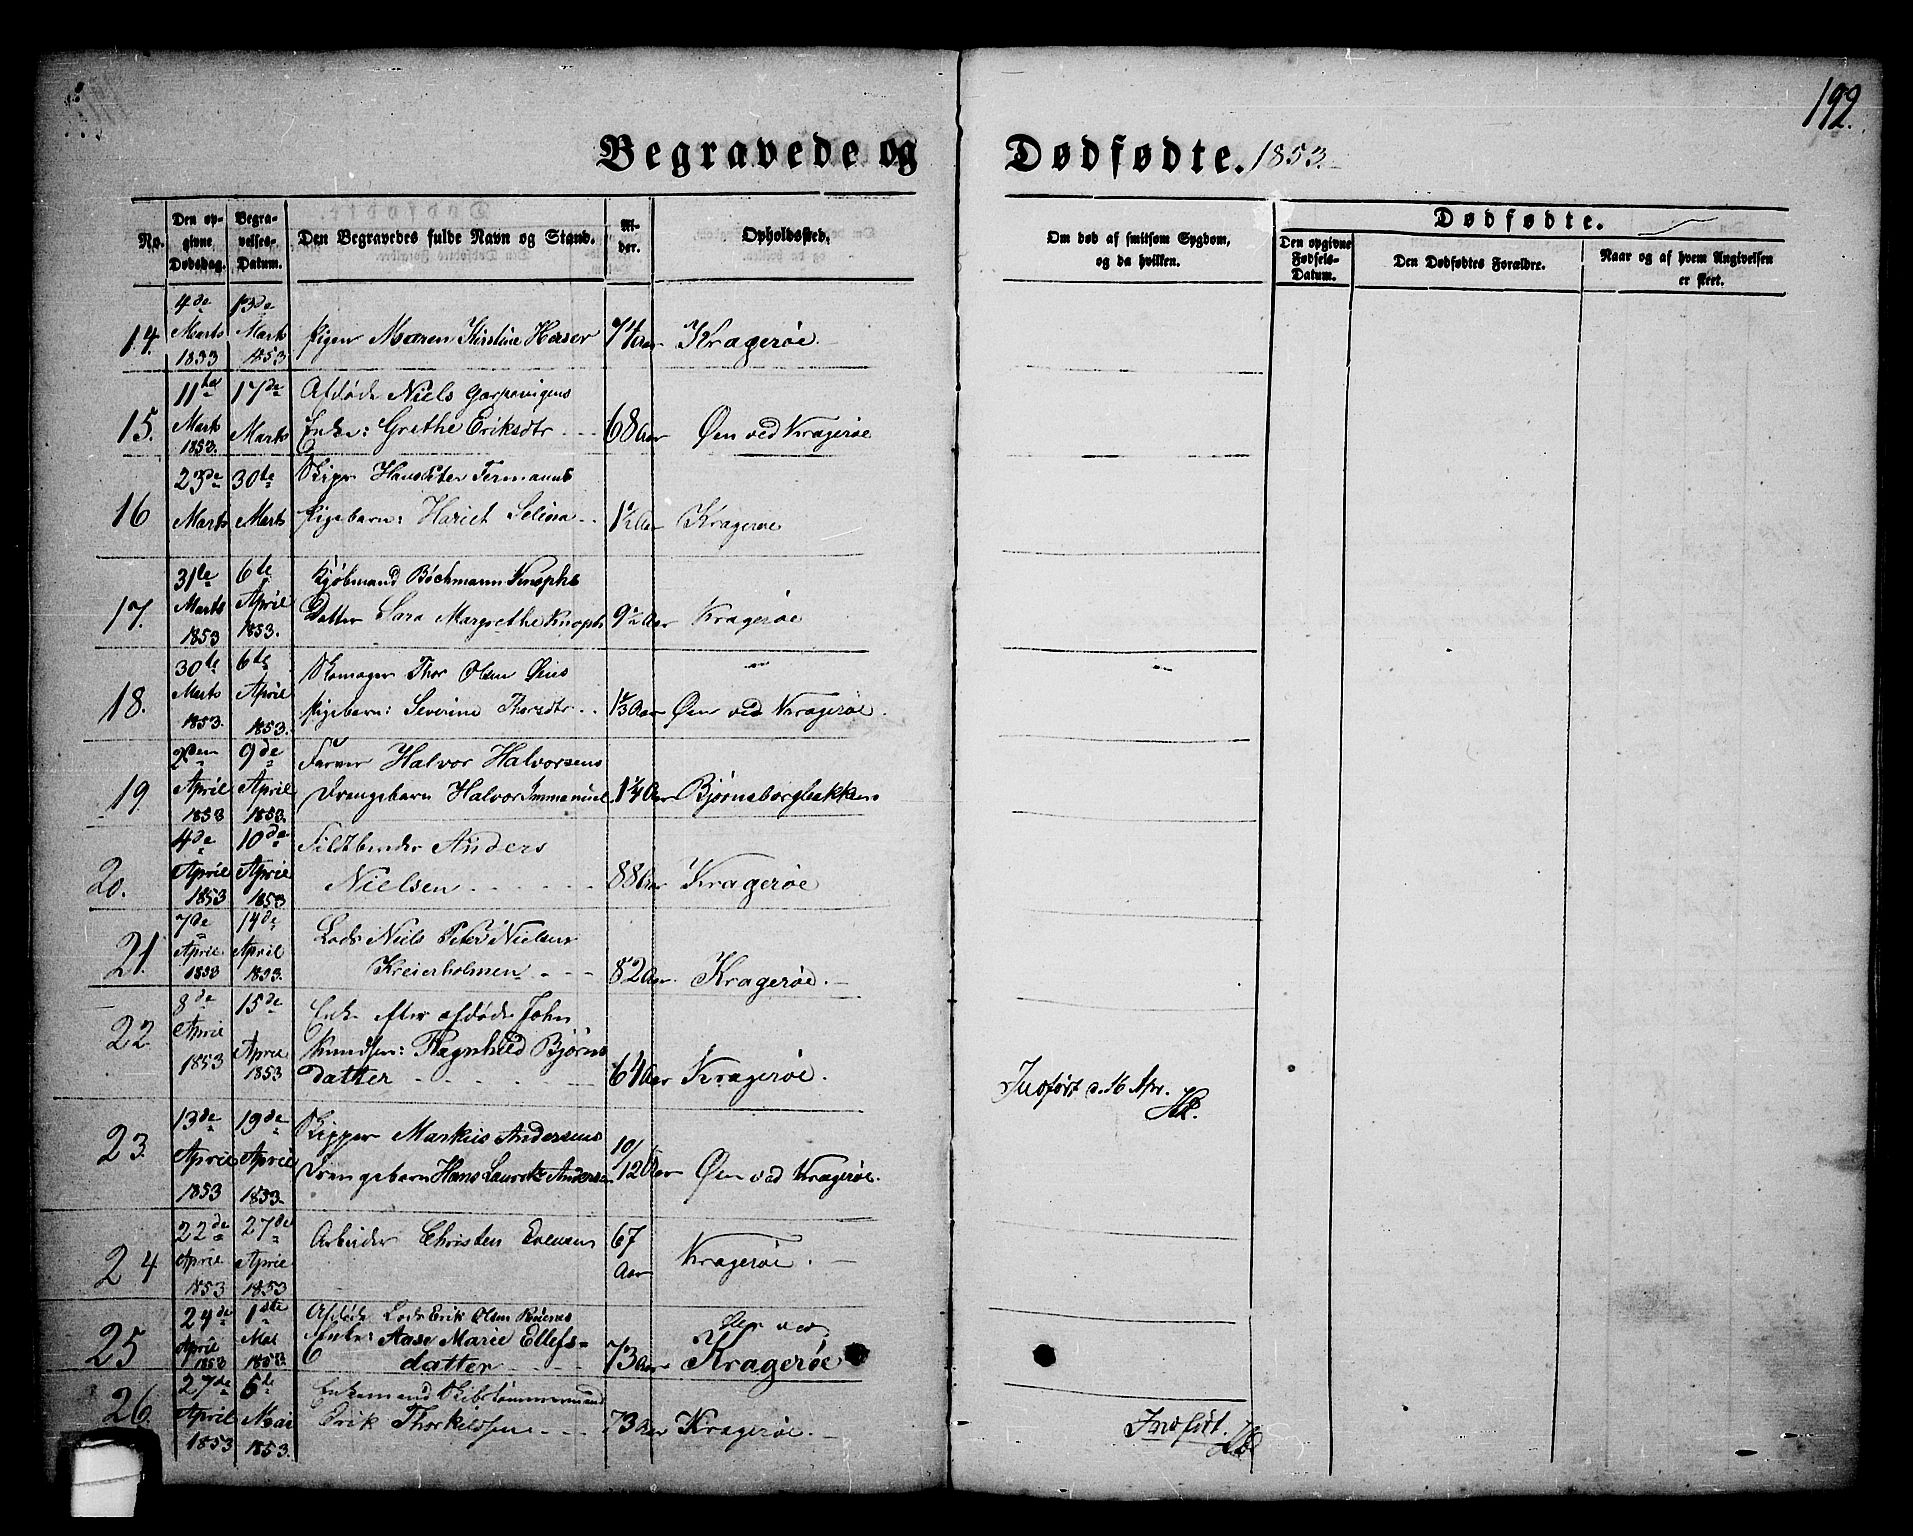 192.
Begravede og Dødfødte. 1853.
No.
Den opgivne Dødsdag.
Begravelses-Datum.
Den Begravedes fulde Navn og Stand.
Alder.
Opholdssted.
Om død af smitsom Sygdom, og da hvilken.
Dødfødte.
Den opgivne Fødsels-Datum.
Den Dødfødtes Forældre.
Naar og af hvem Angivelsen er skeet.
14. 4de Marts 1853 13de Marts 1853 Pigen Maren Kirstine 74 Aar Kragerøe.
15. 11te Marts 1853. 17de Marts Afdøde Niels
Enke: Grethe Eriksdtr 68 Aar Øen ved Kragerøe
16 23de Marts 30te Marts Hans Peter
Pigebarn: Hariet Selina 1½ Aar Kragerøe
17. 31te Marts 1853 6te April 1853. Kjøbmand Bøchmann Knophs
Datter Sara Margrethe Knoph 9½ Aar Kragerøe
18. 30te Marts 1853. 6te April 1853. Skomager Thor Olsen Øens
Pigebarn: Severine Thorsdtr 1⅓ Aar Øen ved Kragerøe.
19 2den April 1853 9de April 1853. Farver Halvor Halvorsens
Drengebarn Halvor Immanuel 1¼ Aar Bjørnsborgbakken
20. 4de April 1853 10de April 1853 Anders
Nielsen 88 Aar Kragerøe
21. 7de April 1853 14de April 1853. Lods Niels Peter Nielsen
Kreierholmen 82 Aar. Kragerøe.
22. 8de April 1853 15de April 1853 Enke efter afdøde John
Knudsen: Ragnhild Bjørns
datter 61 Aar Kragerøe.
Indført d. 16 Apr.
23. 13de April 1853 19de April 1853. Skipper Markus Andersens
Drengebarn Hans Lauritz Andersen 10/12 Aar Øen ved Kragerøe.
24 22de April 1853 27de April 1853 Arbeider Christen Evensen 67 Aar Kragerøe.
25 24de April 1853 1ste Mai 1853. Afdøde Lods Erik Olsen
Enke: Aase Marie Ellefs-
datter 73 Aar Øen ved Kragerøe
26. 27de April 1853 5te Mai 1853. Enkemand Skibstømmermand
Erik Thorkildsen 73 Aar Kragerøe.
Indført.